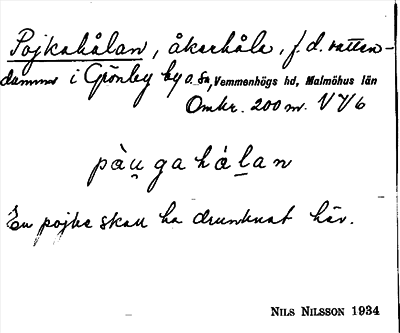 Pojkahålan, åkerhåla, f.d. vatten-
damm i Grönby by o. sn, Vemmenhögs hd, Malmöhus län
Omkr. 200 m. V V/6
pàu̯gahålan
En pojke skall ha drunknat här.
NILS NILSSON 1934